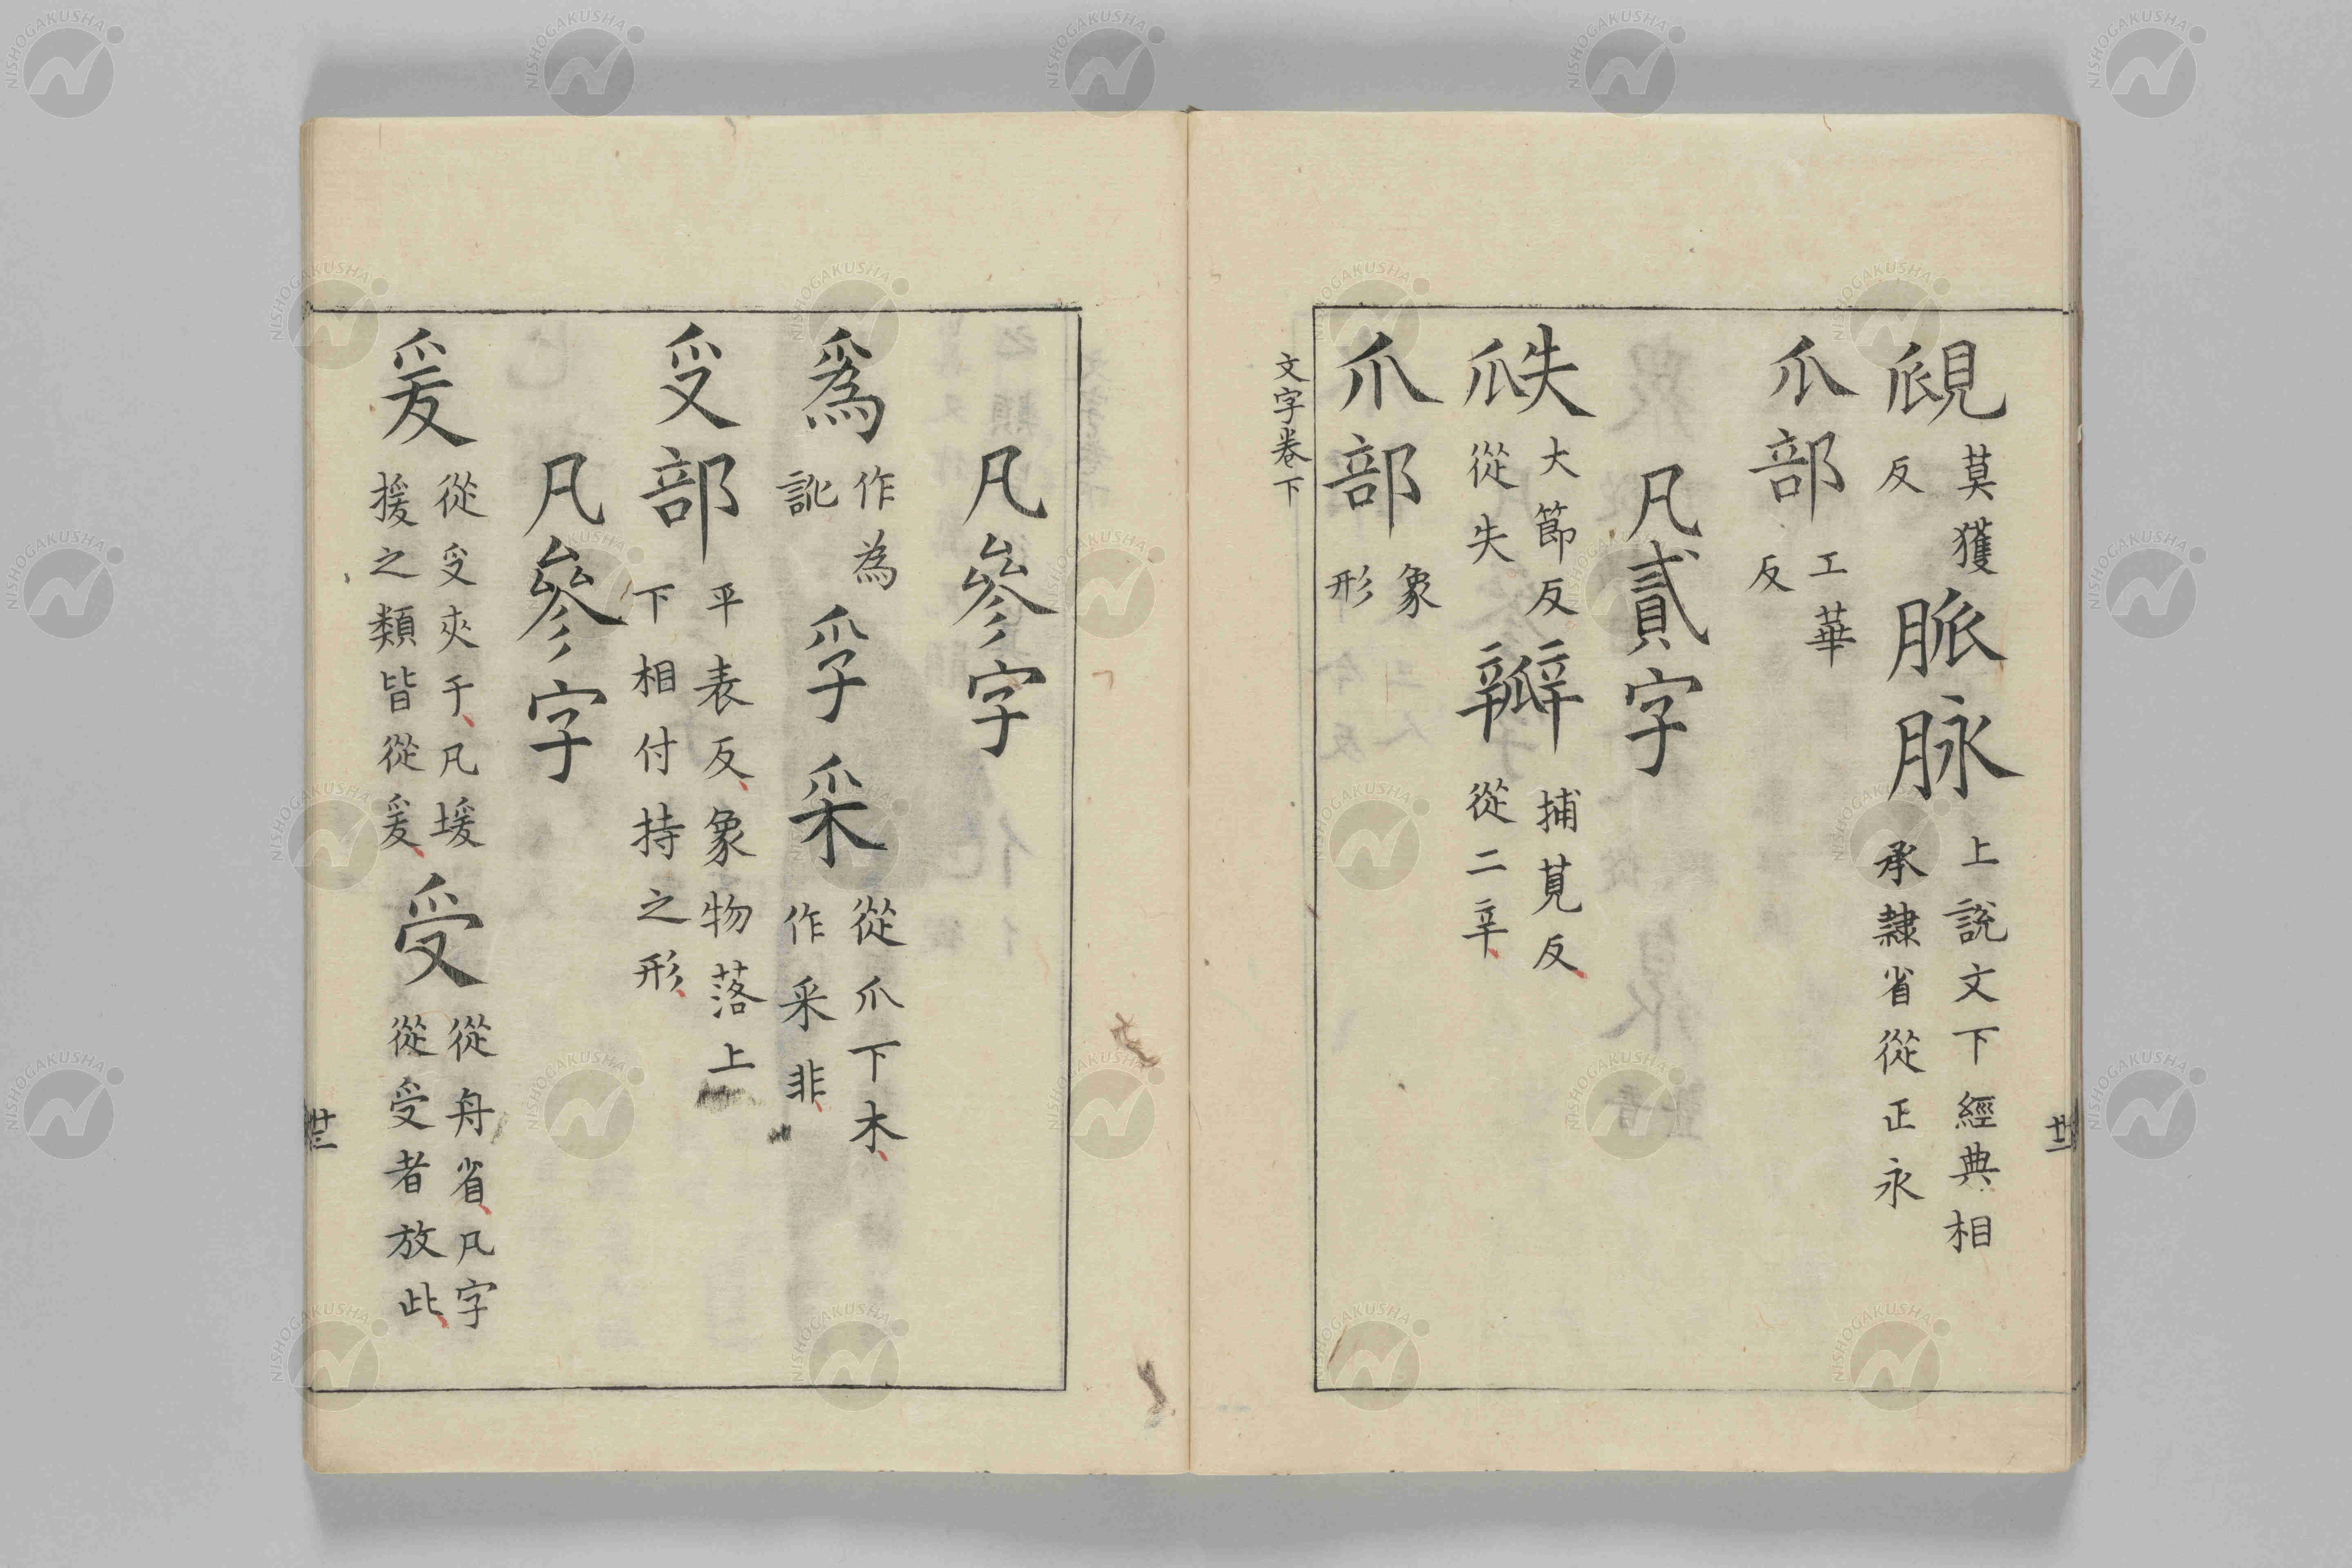 覛莫獲反脈脉上說文下經典相承隷省從正永
瓜部工華反
凡貳字
瓞大節反從失瓣捕莧反從二辛
爪部象形
文字卷下
廿二
凡參字
爲作為訛孚采從爪下木作采非
𠬪部平表反象物落上下相付持之形
凡參字
爰從𠬪夾于凡堫援之類皆從爰受從舟省凡字從受者放此
廿三
NISHOGAKUSHA